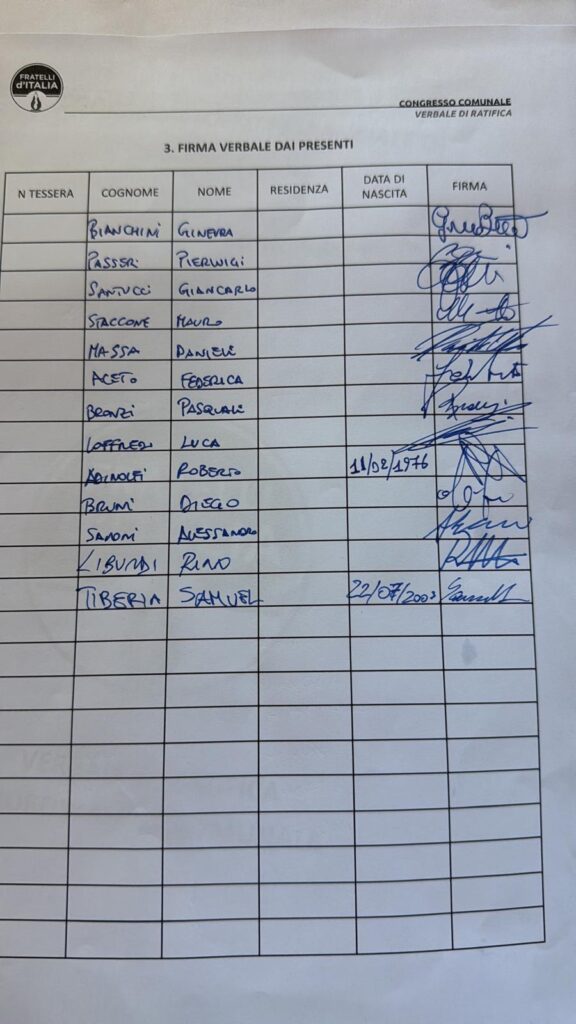 FRATELLI
d'ITALIA
CONGRESSO COMUNALE
VERBALE DI RATIFICA
3. FIRMA VERBALE DAI PRESENTI
N TESSERA COGNOME NOME RESIDENZA DATA DI NASCITA FIRMA
BIANCHINI GINEVRA
PASSERI PIERLUIGI
SANTUCCI GIANCARLO
STACCONE MAURO
MASSA DANIELE
ACETO FEDERICA
BRONZI PASQUALE
LOFFREDI LUCA
ADINOLFI ROBERTO 11/02/1976
BRUNI DIEGO
SANONI ALESSANDRO
LIBURDI RINO
TIBERIA SAMUEL 22/07/2003